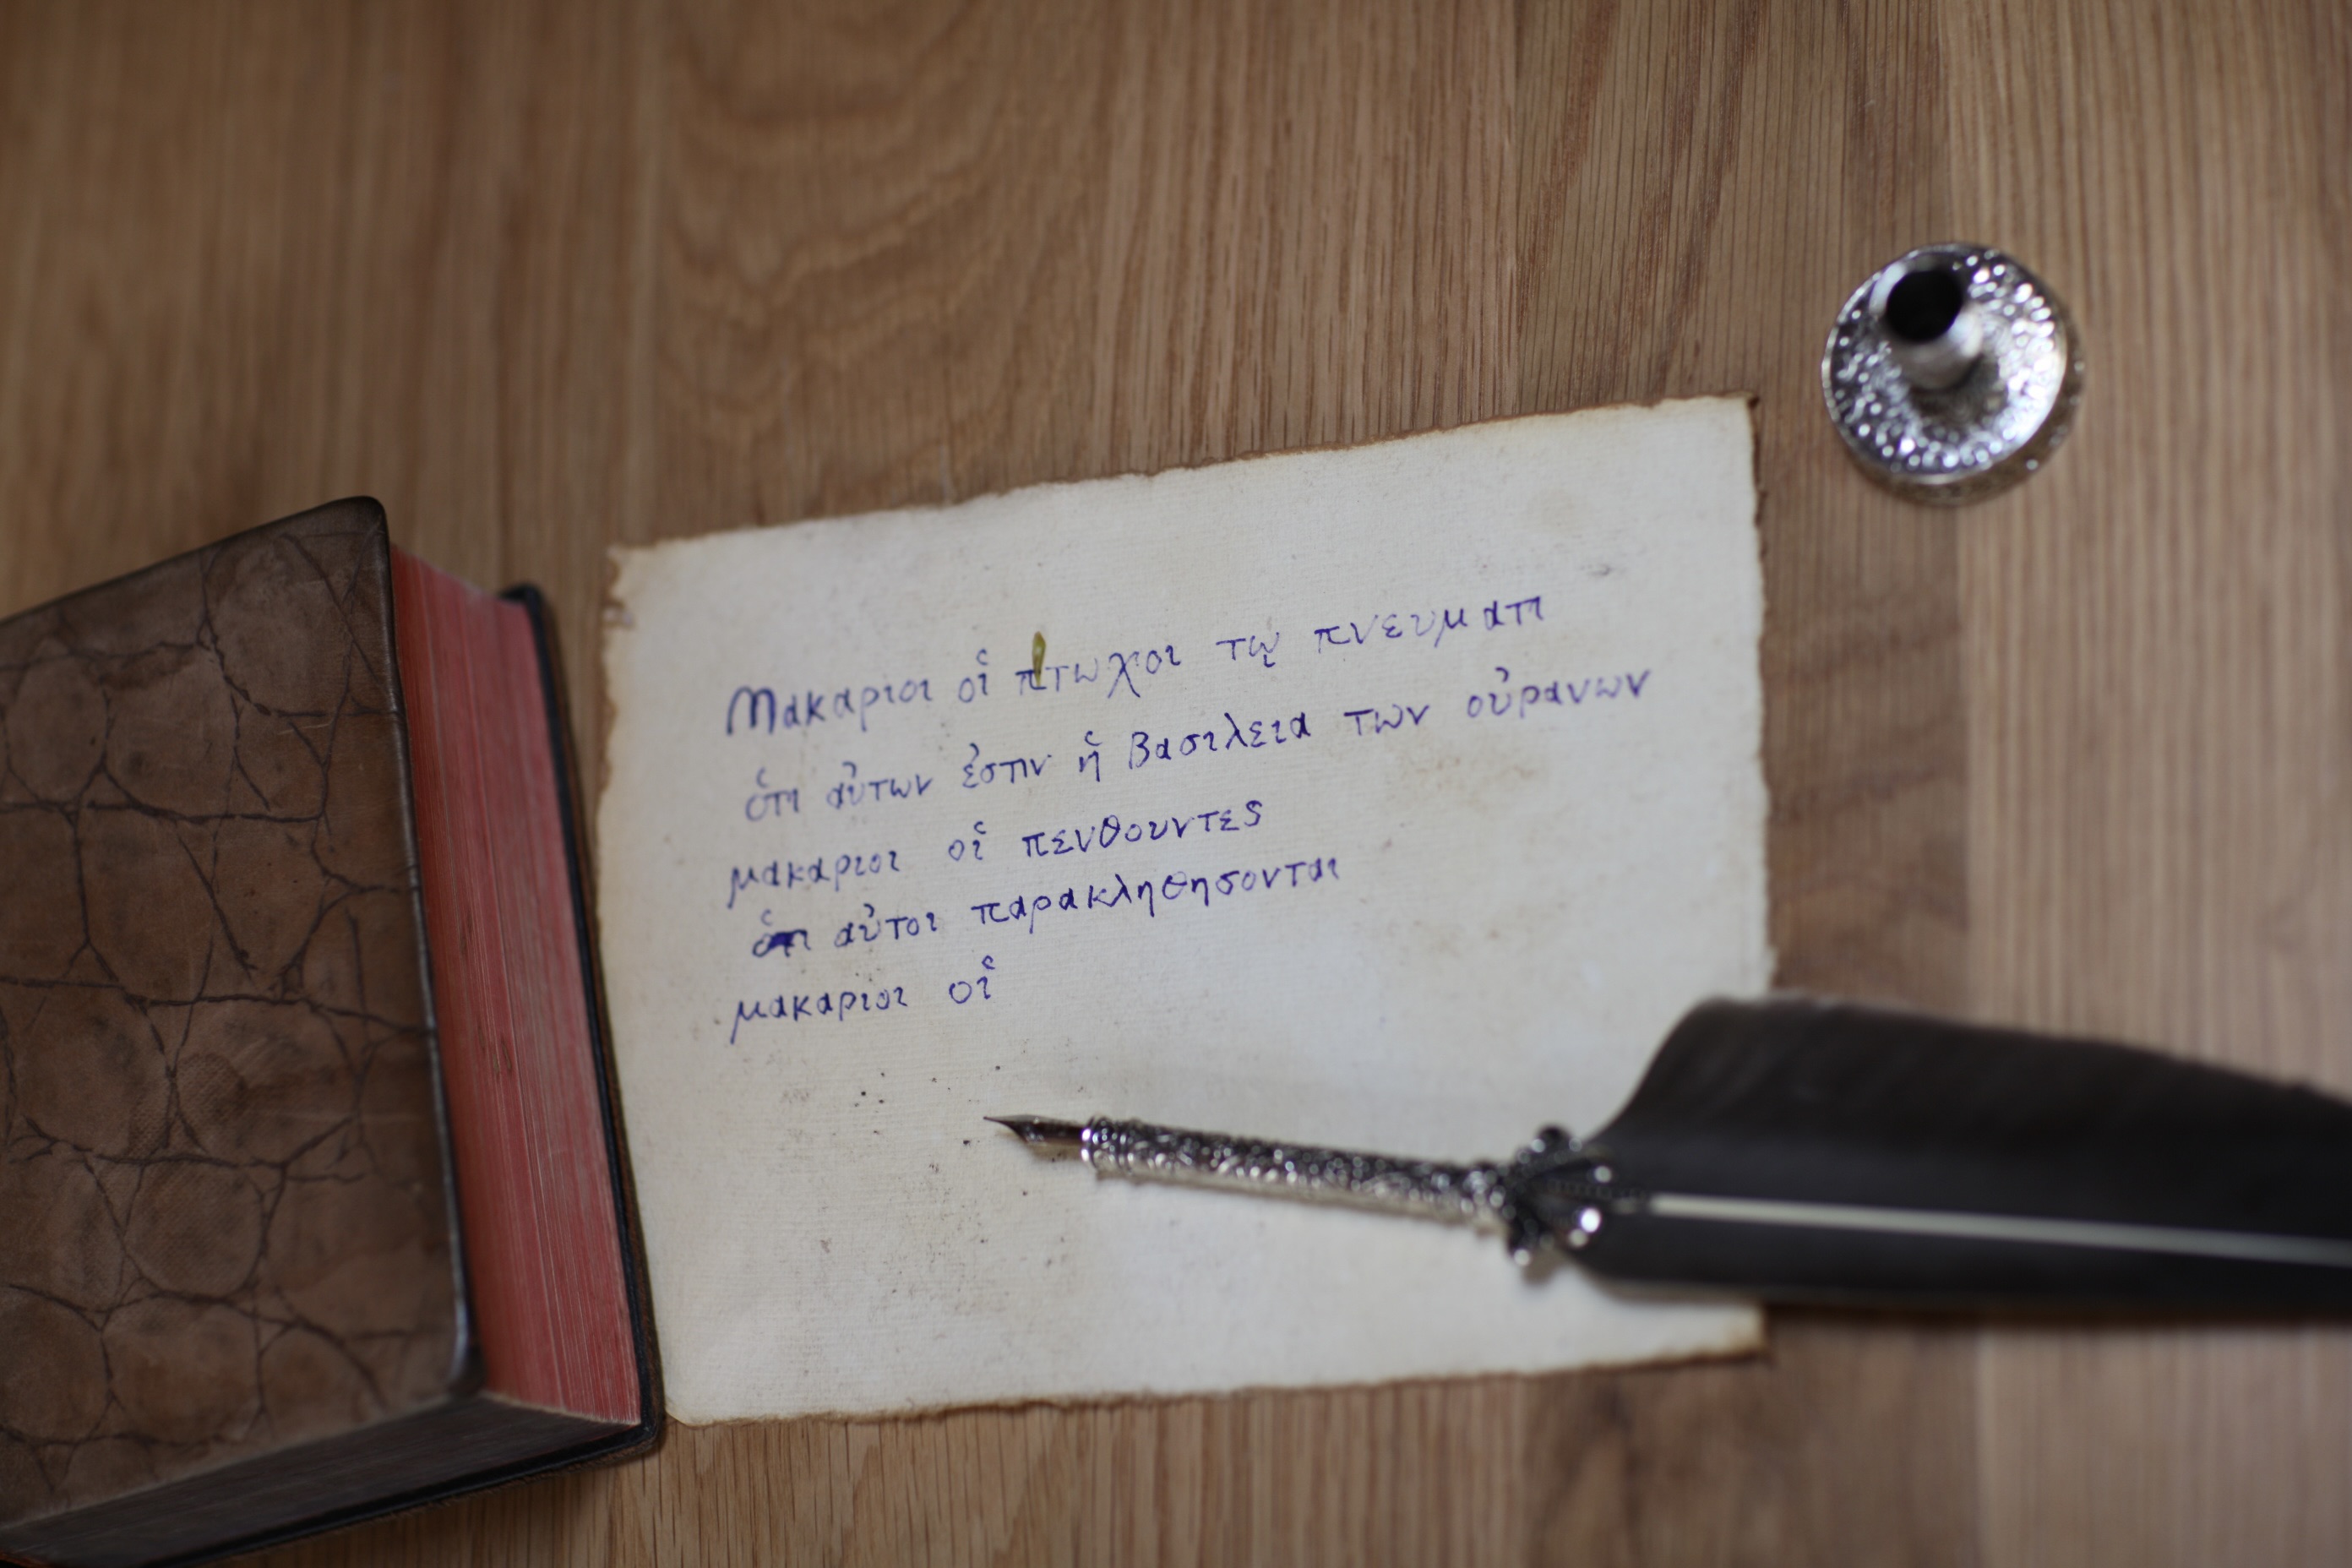 Μακαριοι οἱ πτωχοι τῳ πνευματι
ὁτι αὐτων ἐστιν ἡ βασιλεια των οὐρανων
μακαριοι οἱ πενθουντες
ὁτι αὐτοι παρακληθησονται
μακαριοι οἱ